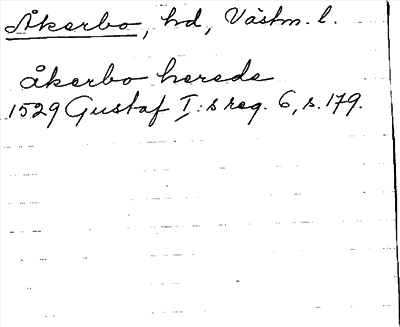 Åkerbo, hd, Västm. l.
åkerbo herede
1529 Gustaf I:s reg. 6, s. 179.